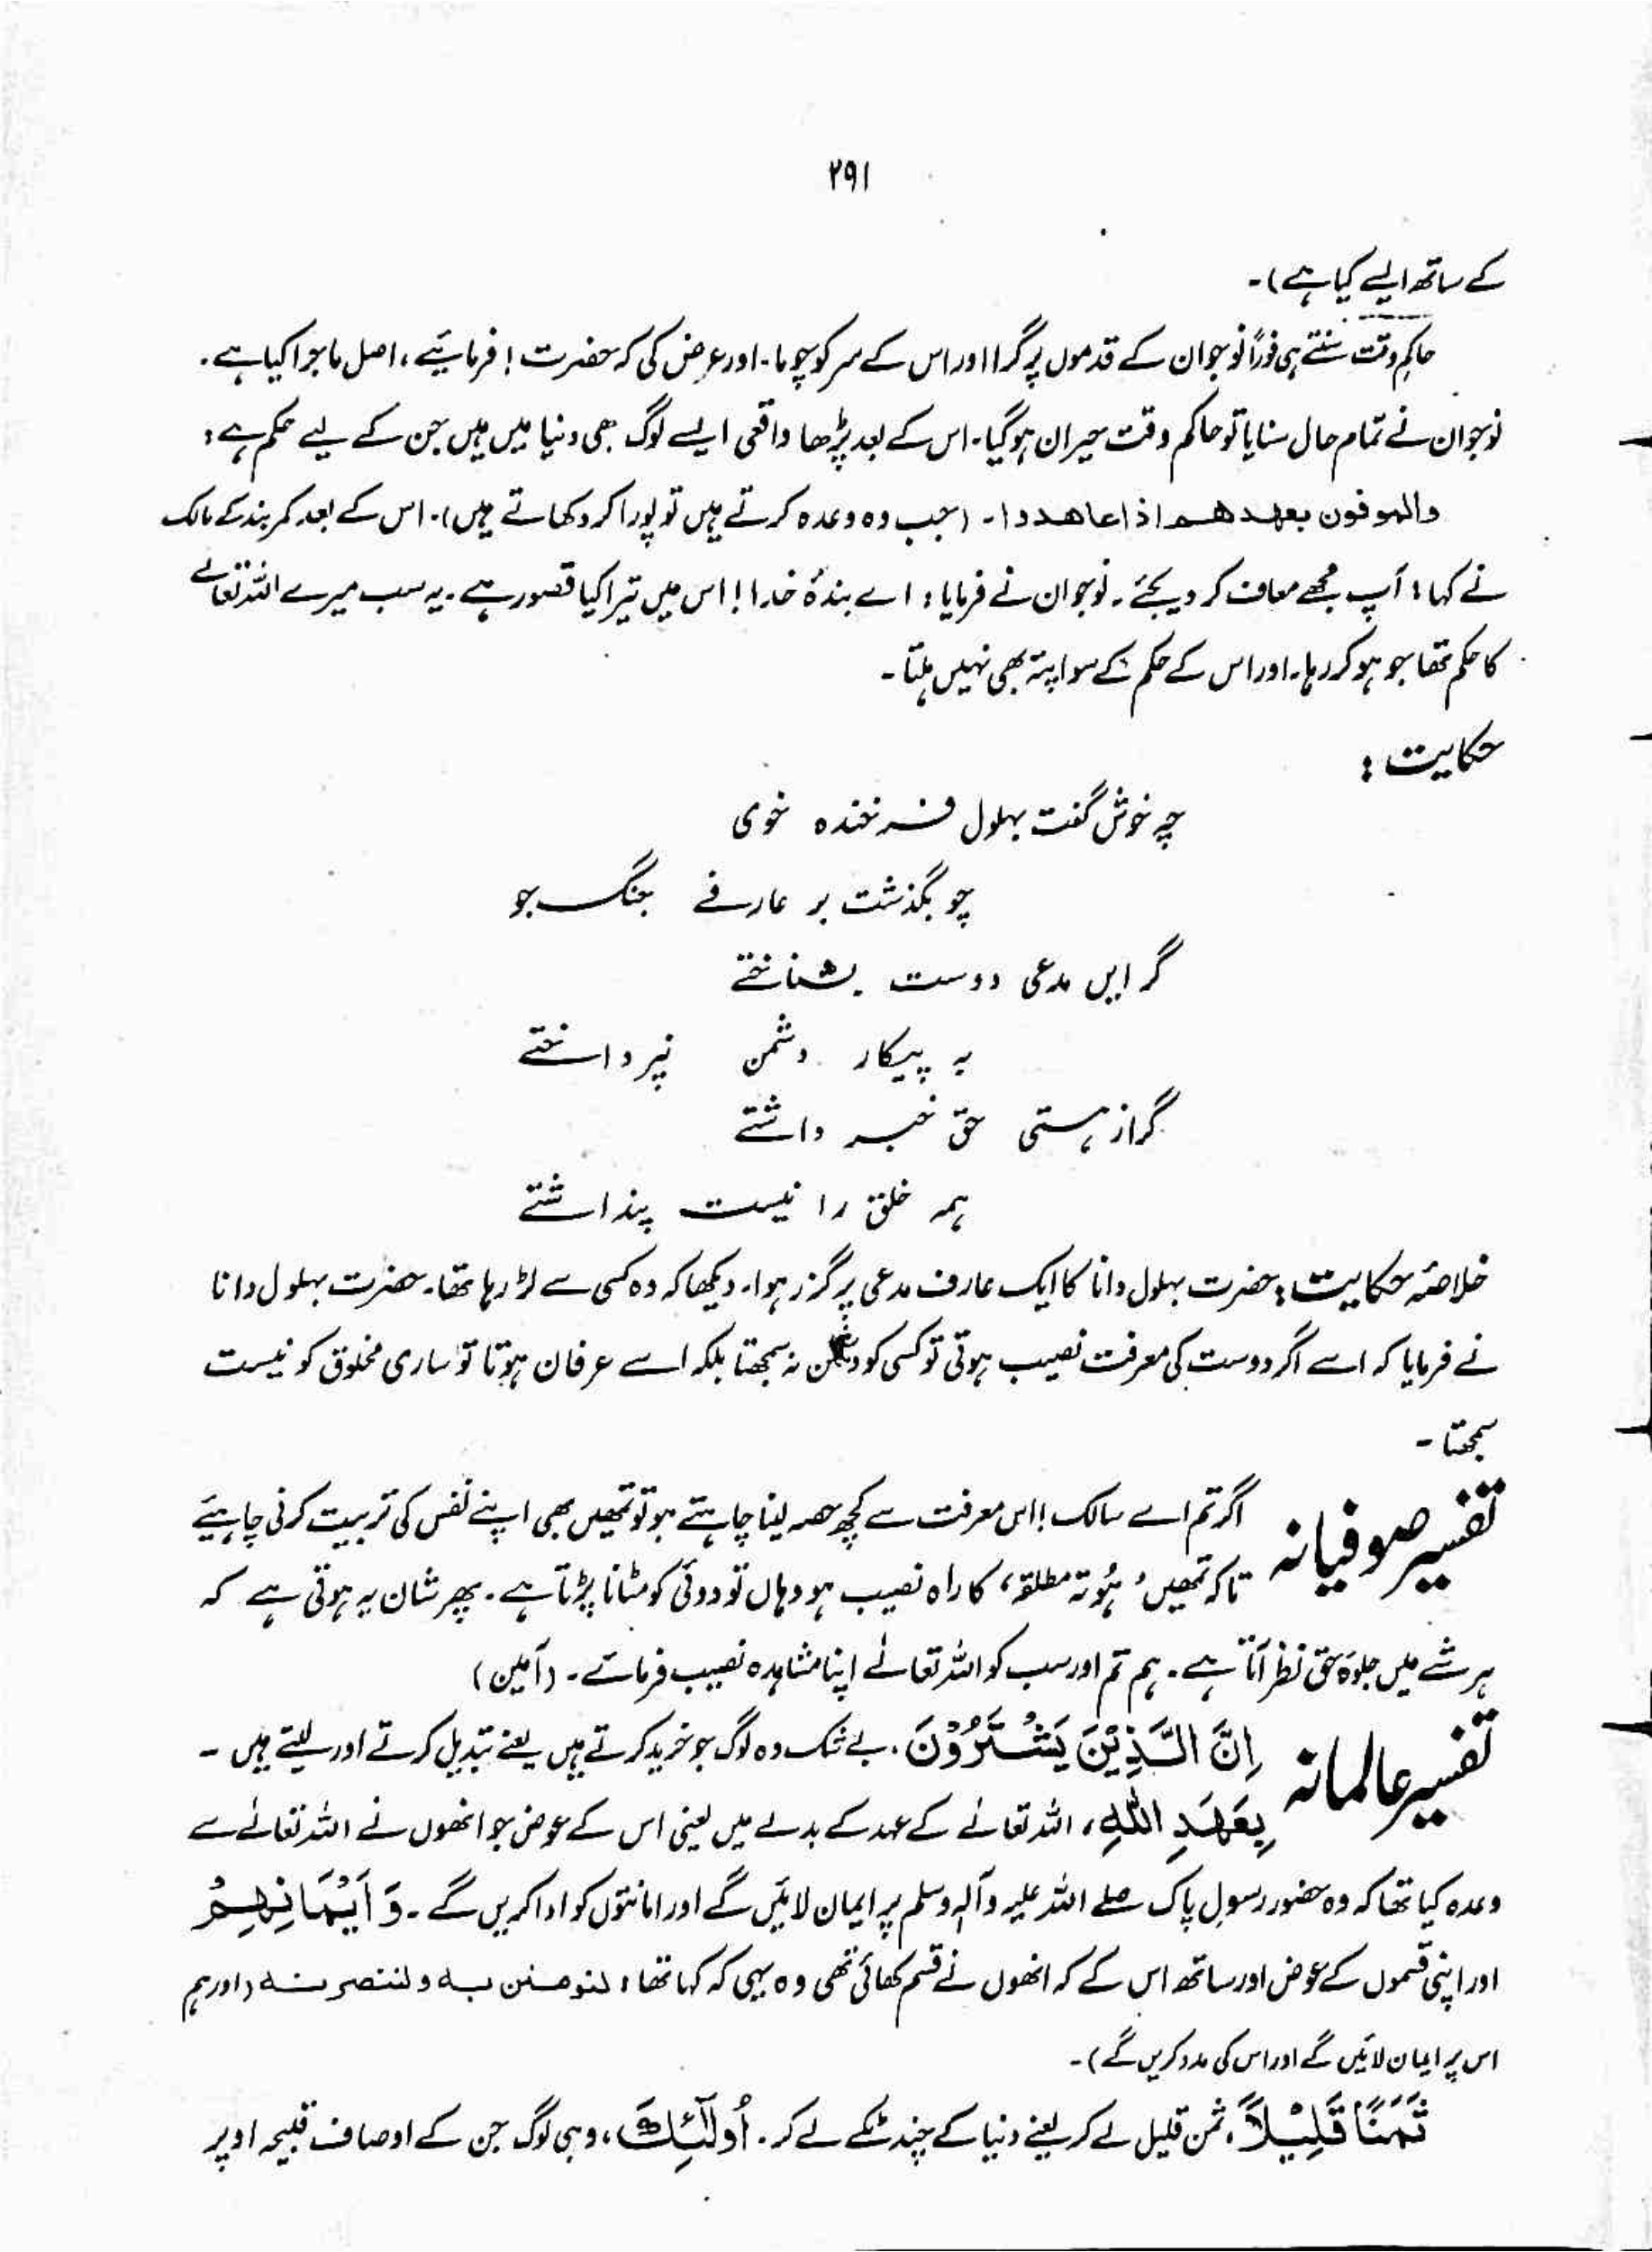 ۲۹۱
کے ساتھ ایسے کیا ہے)۔
حاکمِ وقت سنتے ہی فوراً نوجوان کے قدموں پر گرا اور اس کے سر کو چوما۔ اور عرض کی کہ حضرت! فرمائیے، اصل ماجرا کیا ہے۔
نوجوان نے تمام حال سنایا تو حاکم وقت حیران ہو گیا۔ اس کے بعد پڑھا واقعی ایسے لوگ بھی دنیا میں ہیں جن کے لیے حکم ہے:
والموفون بعھدھم اذا عاھدوا۔ (جب وہ وعدہ کرتے ہیں تو پورا کر دکھاتے ہیں)۔ اس کے بعد کمر بند کے مالک
نے کہا: آپ مجھے معاف کر دیجئے۔ نوجوان نے فرمایا: اے بندۂ خدا! اس میں تیرا کیا قصور ہے۔ یہ سب میرے اللہ تعالےٰ
کا حکم تھا جو ہو کر رہا۔ اور اس کے حکم کے سوا پتہ بھی نہیں ہلتا۔
حکایت:
چہ خوش گفت بہلول فرخندہ خوی
چو بگذشت بر عارفے جنگ جو
گر ایں مدعی دوست بشناختے
بہ پیکار دشمن نپرداختے
گر از ہستی حق خبر داشتے
ہمہ خلق را نیست پنداشتے
خلاصۂ حکایت: حضرت بہلول دانا کا ایک عارف مدعی پر گزر ہوا۔ دیکھا کہ وہ کسی سے لڑ رہا تھا۔ حضرت بہلول دانا
نے فرمایا کہ اسے اگر دوست کی معرفت نصیب ہوتی تو کسی کو دشمن نہ سمجھتا بلکہ اسے عرفان ہوتا تو ساری مخلوق کو نیست
سمجھتا۔
تفسیر صوفیانہ اگر تم اے سالک! اس معرفت سے کچھ حصہ لینا چاہتے ہو تو تمھیں بھی اپنے نفس کی تربیت کرنی چاہیئے
تاکہ تمھیں ' ہُویۃ مطلقہ' کا راہ نصیب ہو وہاں تو دوئی کو مٹانا پڑتا ہے۔ پھر شان یہ ہوتی ہے کہ
ہر شے میں جلوۂ حق نظر آتا ہے۔ ہم تم اور سب کو اللہ تعالےٰ اپنا مشاہدہ نصیب فرمائے۔ (آمین)
تفسیر عالمانہ اِنَّ الَّذِیْنَ یَشْتَرُوْنَ، بے شک وہ لوگ جو خرید کرتے ہیں یعنے تبدیل کرتے اور لیتے ہیں۔
بِعَھْدِ اللّٰہِ، اللہ تعالےٰ کے عہد کے بدلے میں یعنی اس کے عوض جو انھوں نے اللہ تعالےٰ سے
وعدہ کیا تھا کہ وہ حضور رسول پاک صلے اللہ علیہ وآلہ وسلم پر ایمان لائیں گے اور امانتوں کو ادا کریں گے۔ وَ اَیْمَانِھِمْ
اور اپنی قسموں کے عوض اور ساتھ اس کے کہ انھوں نے قسم کھائی تھی وہ یہی کہ کہا تھا: لنومنن بہ ولننصرنہ (اور ہم
اس پر ایمان لائیں گے اور اس کی مدد کریں گے)۔
ثَمَنًا قَلِیْلًا، ثمن قلیل لے کر یعنے دنیا کے چند ٹکے لے کر۔ اُولٰٓئِکَ، وہی لوگ جن کے اوصاف قبیحہ اوپر